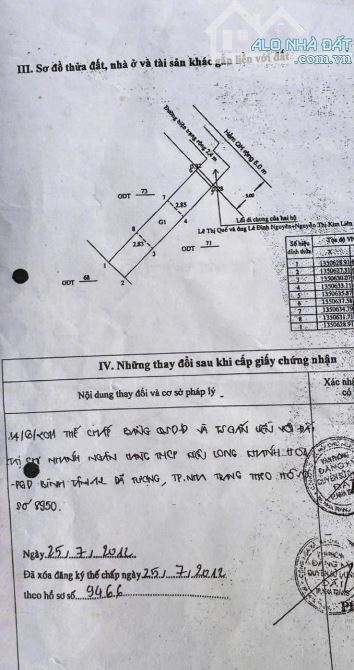 ALO NHÀ ĐẤT
.com.vn
III. Sơ đồ thửa đất, nhà ở và tài sản khác gắn liền với đất
Đường hiện trạng rộng 2.4 m
Hẻm QH rộng 6.0 m
ODT 73
7
2.85
4
G1
8
2.85
3
5.00
Lối đi chung của hai hộ
Lê Thị Quế và ông Lê Đình Nguyên+Nguyễn Thị Kim Liên
ODT 71
1
2
ODT 68
Số hiệu đỉnh thửa
Tọa độ VN
X
1 1350628.91
2 1350627.31
3 1350630.07
4 1350633.11
5 1350635.87
6 1350637.38
7 1350634.79
8 1350631.71
1 1350628.91
IV. Những thay đổi sau khi cấp giấy chứng nhận
Nội dung thay đổi và cơ sở pháp lý
Xác nhận
có
THẾ CHẤP BẰNG QSDĐ VÀ TSGẮN LIỀN VỚI ĐẤT
TẠI CHI NHÁNH NGÂN HÀNG TMCP LONG KHÁNH HÒA
-PGD BÌNH TÂN DÃ TƯỢNG, TP.NHA TRANG THEO HỒ SƠ
SỐ 8950.
Ngày 25/7/2012
Đã xóa đăng ký thế chấp ngày 25/7/2012
theo hồ sơ số 9466